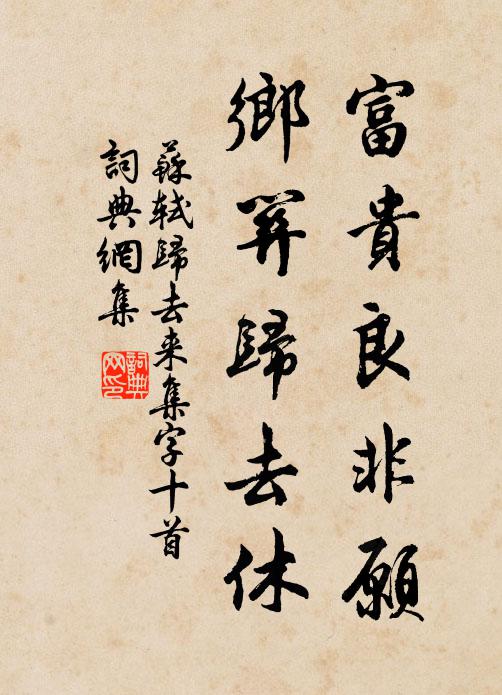 富貴良非願
鄉關歸去休
蘇軾歸去来集字十首
詞典網集
詞典
网印